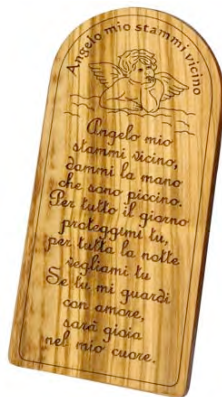 Angelo mio stammi vicino
Angelo mio
stammi vicino,
dammi la mano
che sono piccino.
Per tutto il giorno
proteggimi tu,
per tutta la notte
vegliami tu
Se tu mi guardi
con amore,
sarà gioia
nel mio cuore.